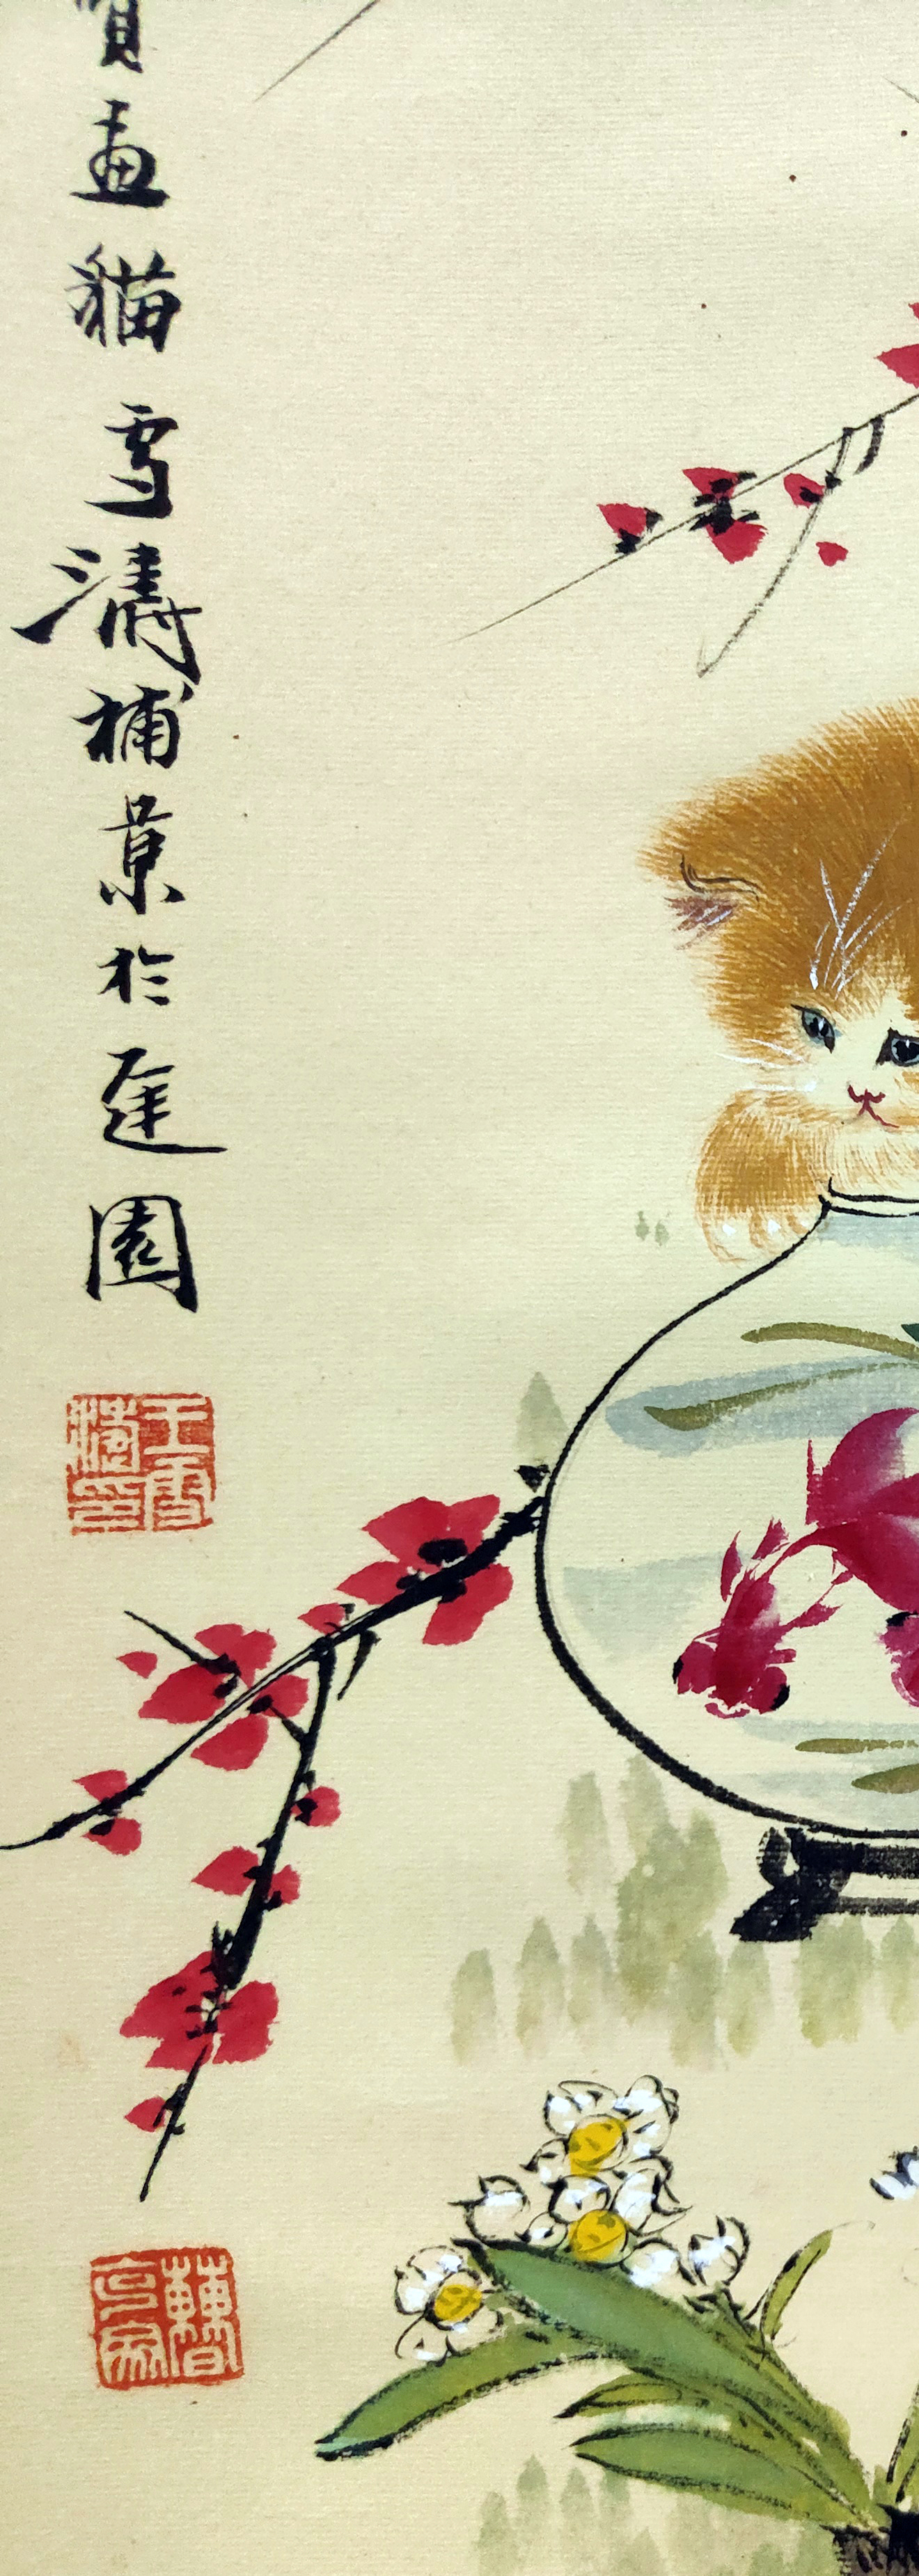 畫貓雪濤補景於遲園
王雪濤印